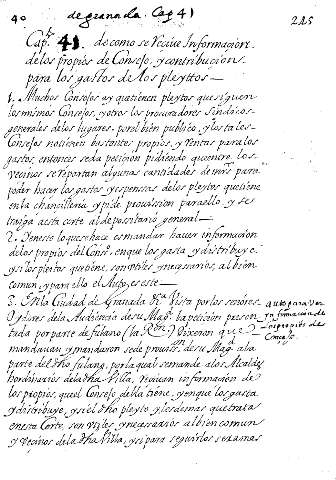 40 de granada. Cap 41 225
Cap. 41. de como se recive Informacion
de los propios de Consejo, y contribucion
para los gastos de los pleyttos
1. Muchos Consejos ay que tienen pleytos que siguen
los mismos Consejos, y otros los procuradores Sindicos
generales de los lugares, por el bien publico, y los tales
Consejos no tienen bastantes propios, y rentas para los
gastos, entonces se da peticion pidiendo que entre los
vecinos se repartan algunas cantidades de mrs para
poder hacer los gastos y espensas de los pleytos que tiene
en la chancilleria y pide provission para ello y se
traiga a esta corte al depositario general
2. Y en esto lo que se hace es mandar haver informacion
de los propios del Conso. en que los gasta y distribuye.
y si los pleitos que tiene, son utiles y necesarios al bien
comun, y para ello el Auto, es este
3. En la Ciudad de Granada &a. Vista por los señores
Oydores de la Audiencia de su Magd. la peticion presen
tada por parte de fulano (la Ron.) Dixeron que
mandavan y mandaron se de provision de su Magd. a la
parte del dho fulano, por la qual se mande a los Alcaldes
hordinarios de la dha Villa, reciban informacion de
los propios, que el Consejo de la tiene, y en que los gasta
y distribuye, y si el dho pleyto, y los demas que trata
en esta Corte, son utiles, y necesarios al bien comun
y vecinos de la dha Villa, y si para seguirlos
auto para ver
la informacion de
los propios de
Concejo